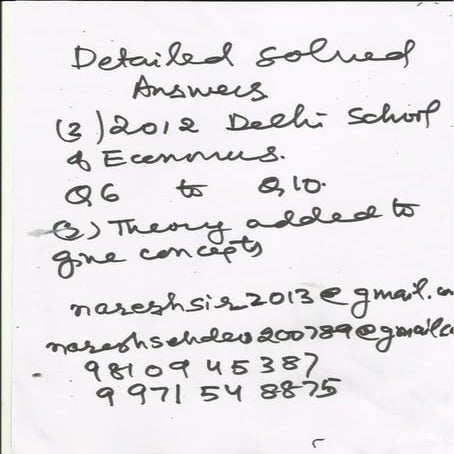 Detailed solved
Answers
(2) 2012 Delhi School
of Economics.
Q6 to Q10.
Q) Theory added to
give concepts
nareshsir2013@gmail.co
nareshsehdev200789@gmailc
9810945387
9971548875